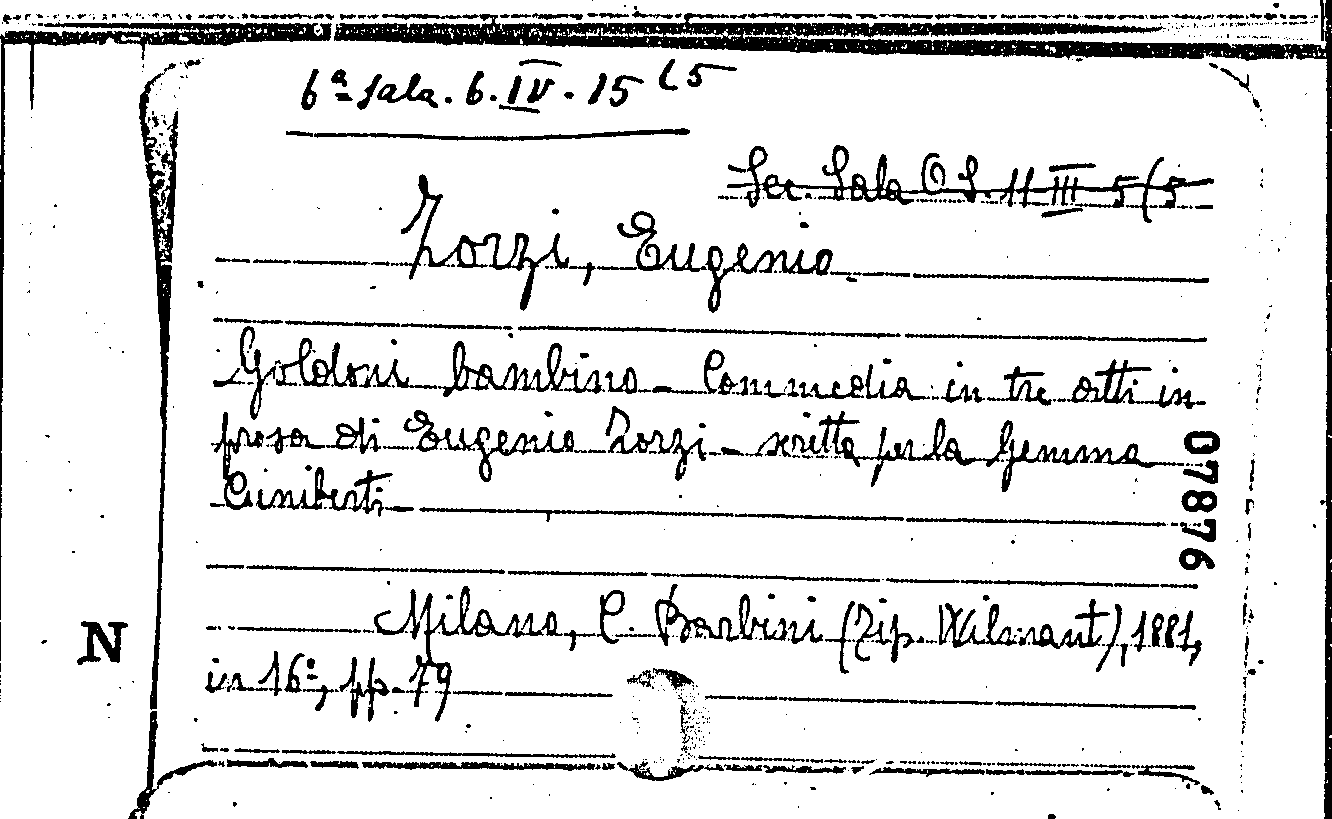 6ª Sala. 6. IV. 15 (5
Sec. Sala O S. 11 III 5 (5
Zorzi, Eugenio
Goldoni bambino - Commedia in tre atti in
prosa di Eugenio Zorzi - scritta per la Gemma
Cuniberti
07876
Milano, C. Barbini (Tip. Wilmant), 1881,
N
in 16º, pp. 79